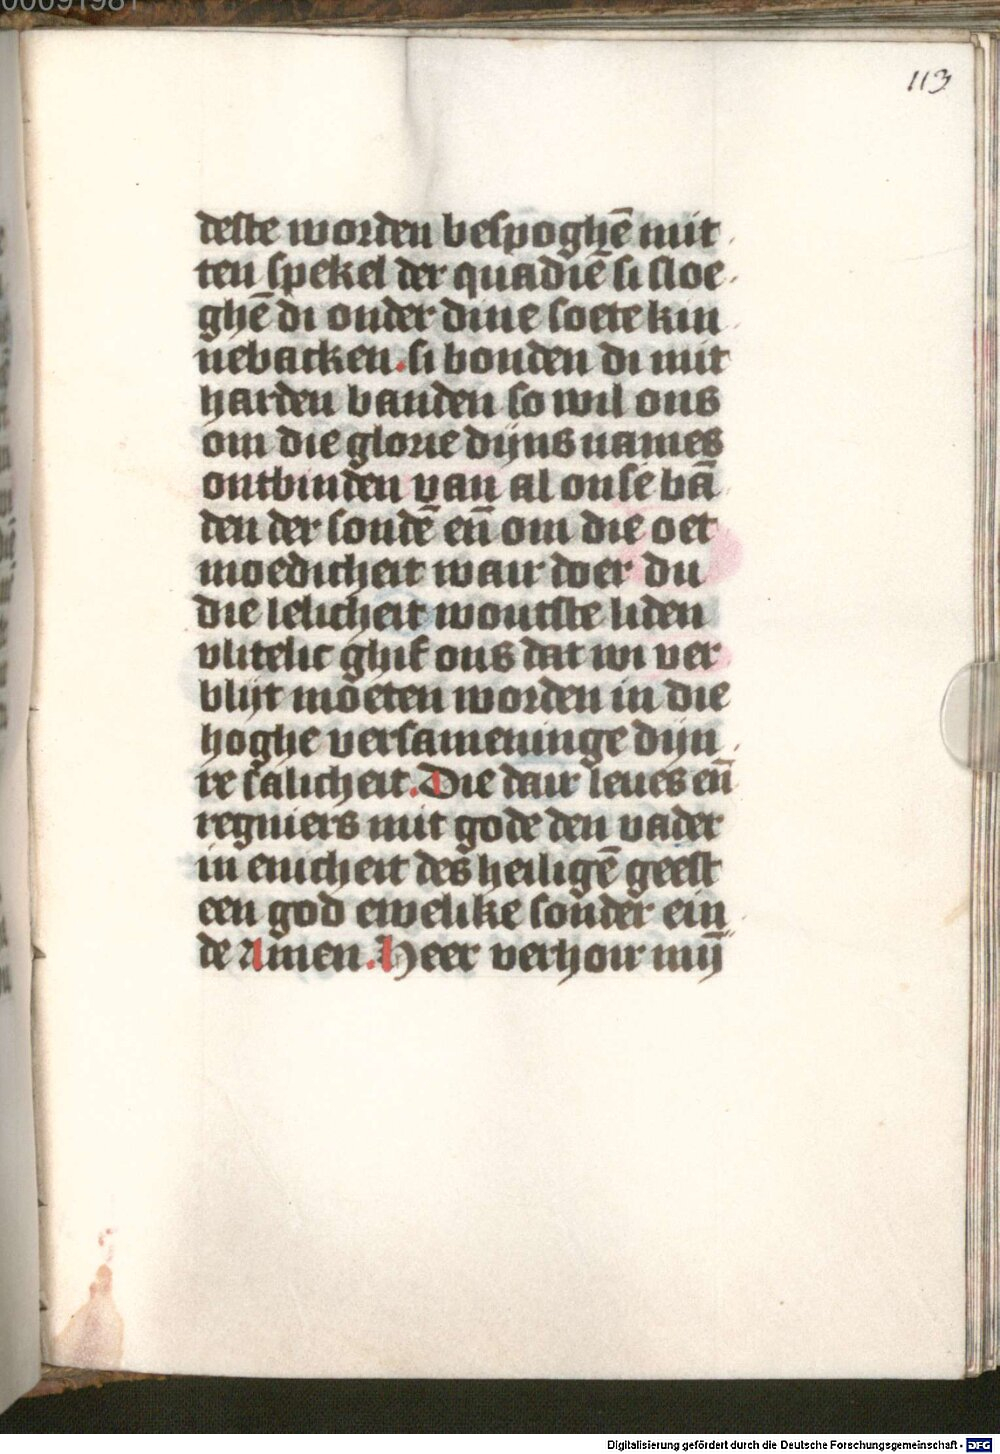 00091981
113
deste worden bespoghē mit
ten spekel der quadiē si sloe
ghē di onder dine soete kin
nebacken. si bonden di mit
harden banden so wil ons
om die glorie dijns names
ontbinden van al onse bā
den der sondē eñ om die oet
moedicheit wair doer du
die lelicheit woutste liden
vlitelic ghif ons dat wi ver
blijt moeten worden in die
hoghe versameninge dijn
re salicheit. Die dair leues eñ
regniers mit gode den vader
in enicheit des heiligē geest
een god ewelike sonder ein
de Amen. Heer verhoir mij̄
Digitalisierung gefördert durch die Deutsche Forschungsgemeinschaft - DFG